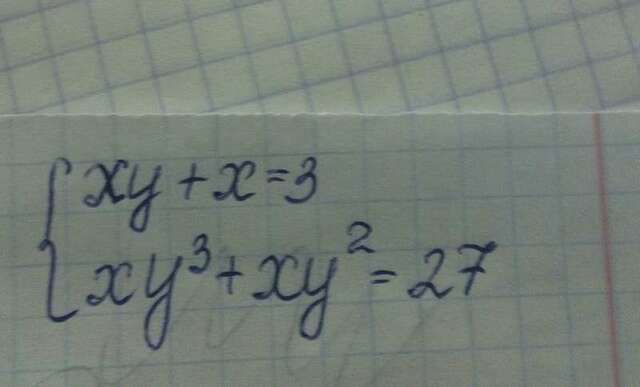 xy + x = 3
xy³ + xy² = 27